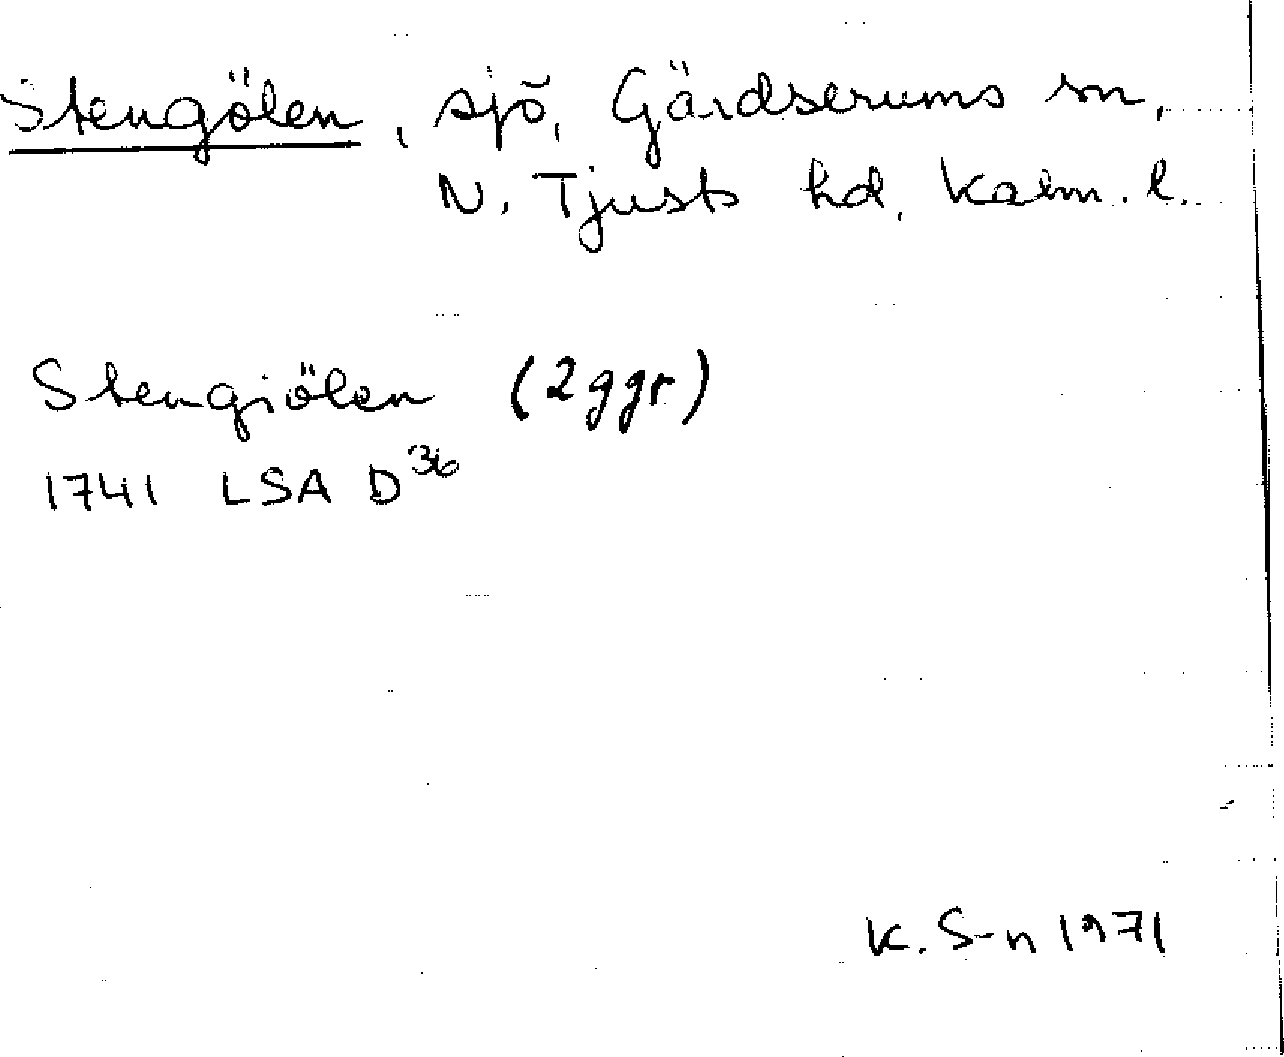 Stengölen, sjö, Gärdserums sn,
N. Tjusts hd, Kalm. l.
Stengiölen (2 ggr)
1741 LSA D36
K. S-n 1971